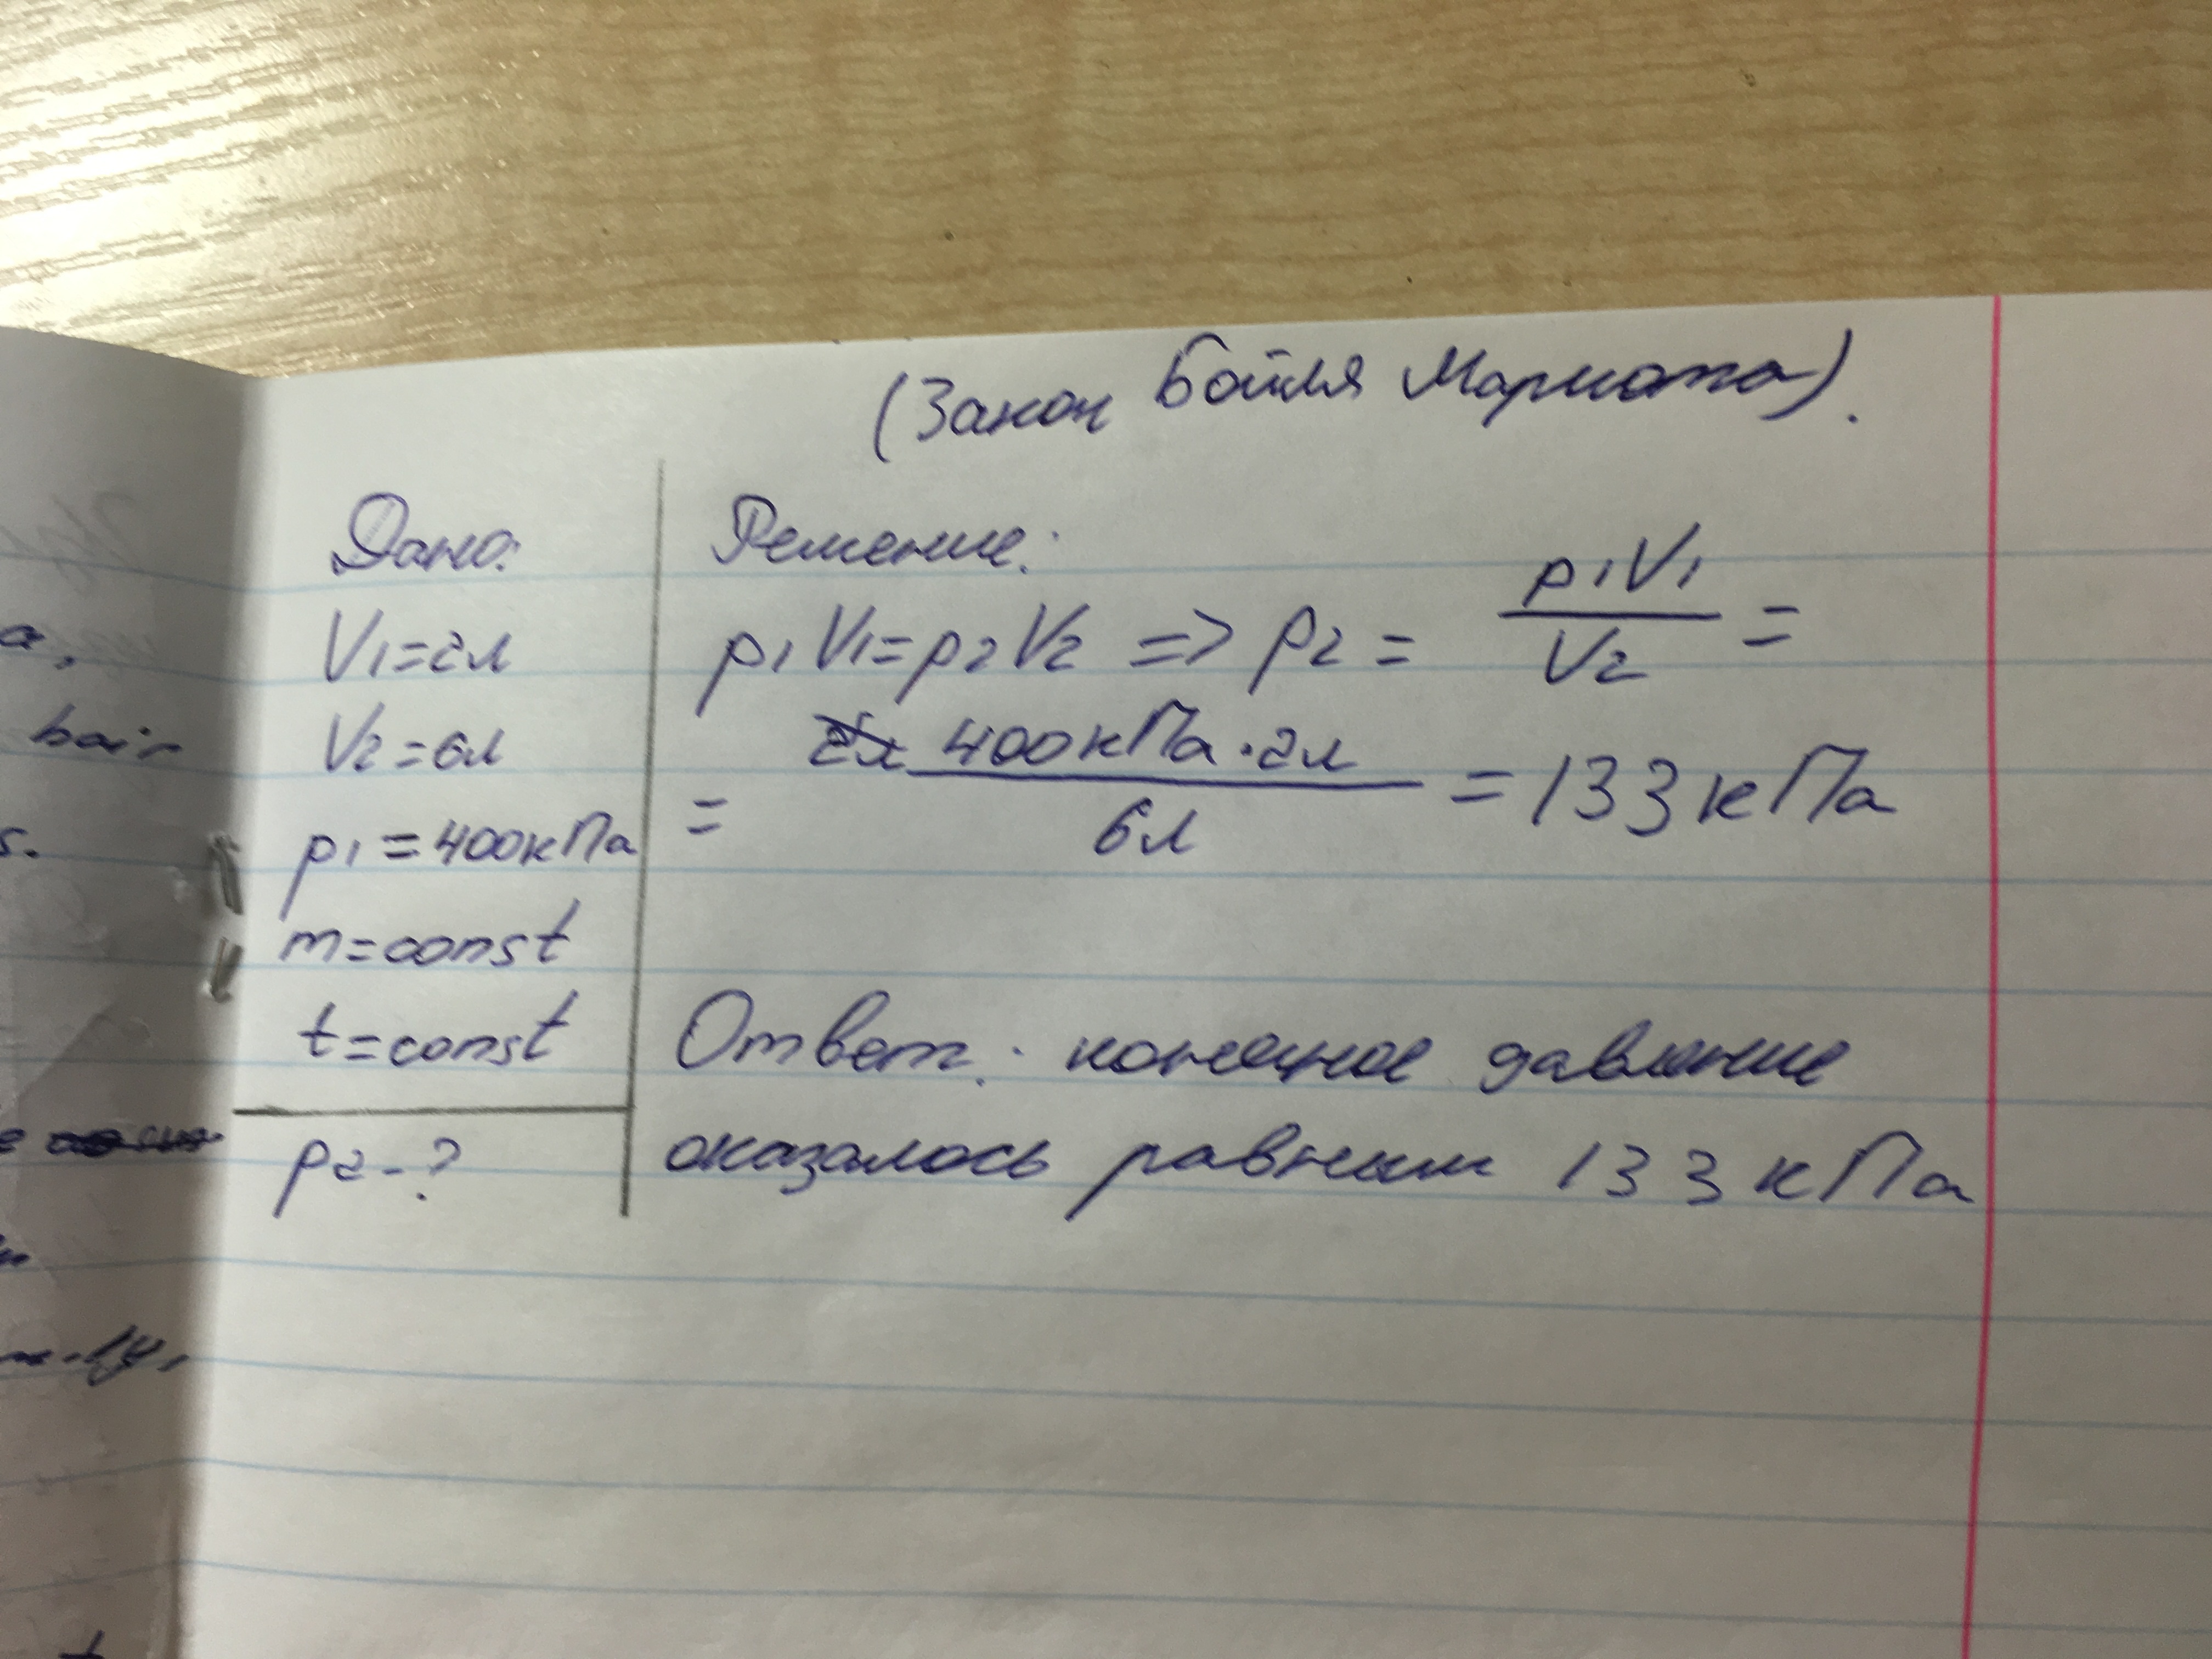 (Закон Бойля Мариота).
Дано:
V1=2л
V2=6л
p1=400кПа
m=const
t=const
p2-?
Решение:
p1V1=p2V2 => p2= p1V1/V2 =
= 400кПа·2л/6л =133кПа
Ответ: конечное давление
оказалось равным 133кПа
bair
s.